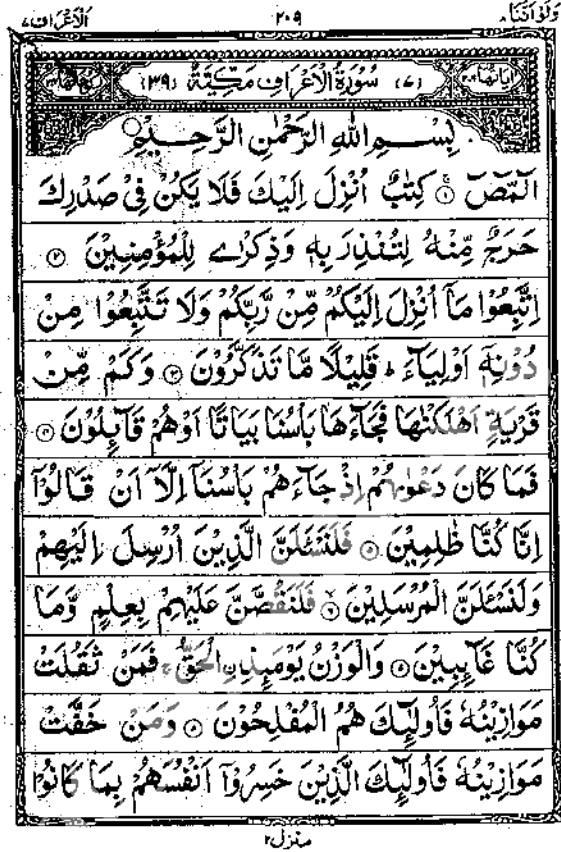 وَلَوْ اَنَّنَا ٨ ٢٠٩ اَلْاَعْرَاف ٧
اٰيَاتُهَا (٧) سُوْرَةُ الْاَعْرَافِ مَكِّيَّةٌ (٣٩)
بِسْمِ اللّٰهِ الرَّحْمٰنِ الرَّحِيْمِ
الٓمّٓصٓ ۝١ كِتٰبٌ اُنْزِلَ اِلَيْكَ فَلَا يَكُنْ فِيْ صَدْرِكَ
حَرَجٌ مِّنْهُ لِتُنْذِرَ بِهٖ وَذِكْرٰى لِلْمُؤْمِنِيْنَ ۝٢
اِتَّبِعُوْا مَآ اُنْزِلَ اِلَيْكُمْ مِّنْ رَّبِّكُمْ وَلَا تَتَّبِعُوْا مِنْ
دُوْنِهٖٓ اَوْلِيَآءَ ؕ قَلِيْلًا مَّا تَذَكَّرُوْنَ ۝٣ وَكَمْ مِّنْ
قَرْيَةٍ اَهْلَكْنٰهَا فَجَآءَهَا بَاْسُنَا بَيَاتًا اَوْهُمْ قَآئِلُوْنَ ۝٤
فَمَا كَانَ دَعْوٰىهُمْ اِذْ جَآءَهُمْ بَاْسُنَآ اِلَّآ اَنْ قَالُوْٓا
اِنَّا كُنَّا ظٰلِمِيْنَ ۝٥ فَلَنَسْئَلَنَّ الَّذِيْنَ اُرْسِلَ اِلَيْهِمْ
وَلَنَسْئَلَنَّ الْمُرْسَلِيْنَ ۝٦ فَلَنَقُصَّنَّ عَلَيْهِمْ بِعِلْمٍ وَّمَا
كُنَّا غَآئِبِيْنَ ۝٧ وَالْوَزْنُ يَوْمَئِذِ ࣙالْحَقُّ ۚ فَمَنْ ثَقُلَتْ
مَوَازِيْنُهٗ فَاُولٰٓئِكَ هُمُ الْمُفْلِحُوْنَ ۝٨ وَمَنْ خَفَّتْ
مَوَازِيْنُهٗ فَاُولٰٓئِكَ الَّذِيْنَ خَسِرُوْٓا اَنْفُسَهُمْ بِمَا كَانُوْا
منزل ٢